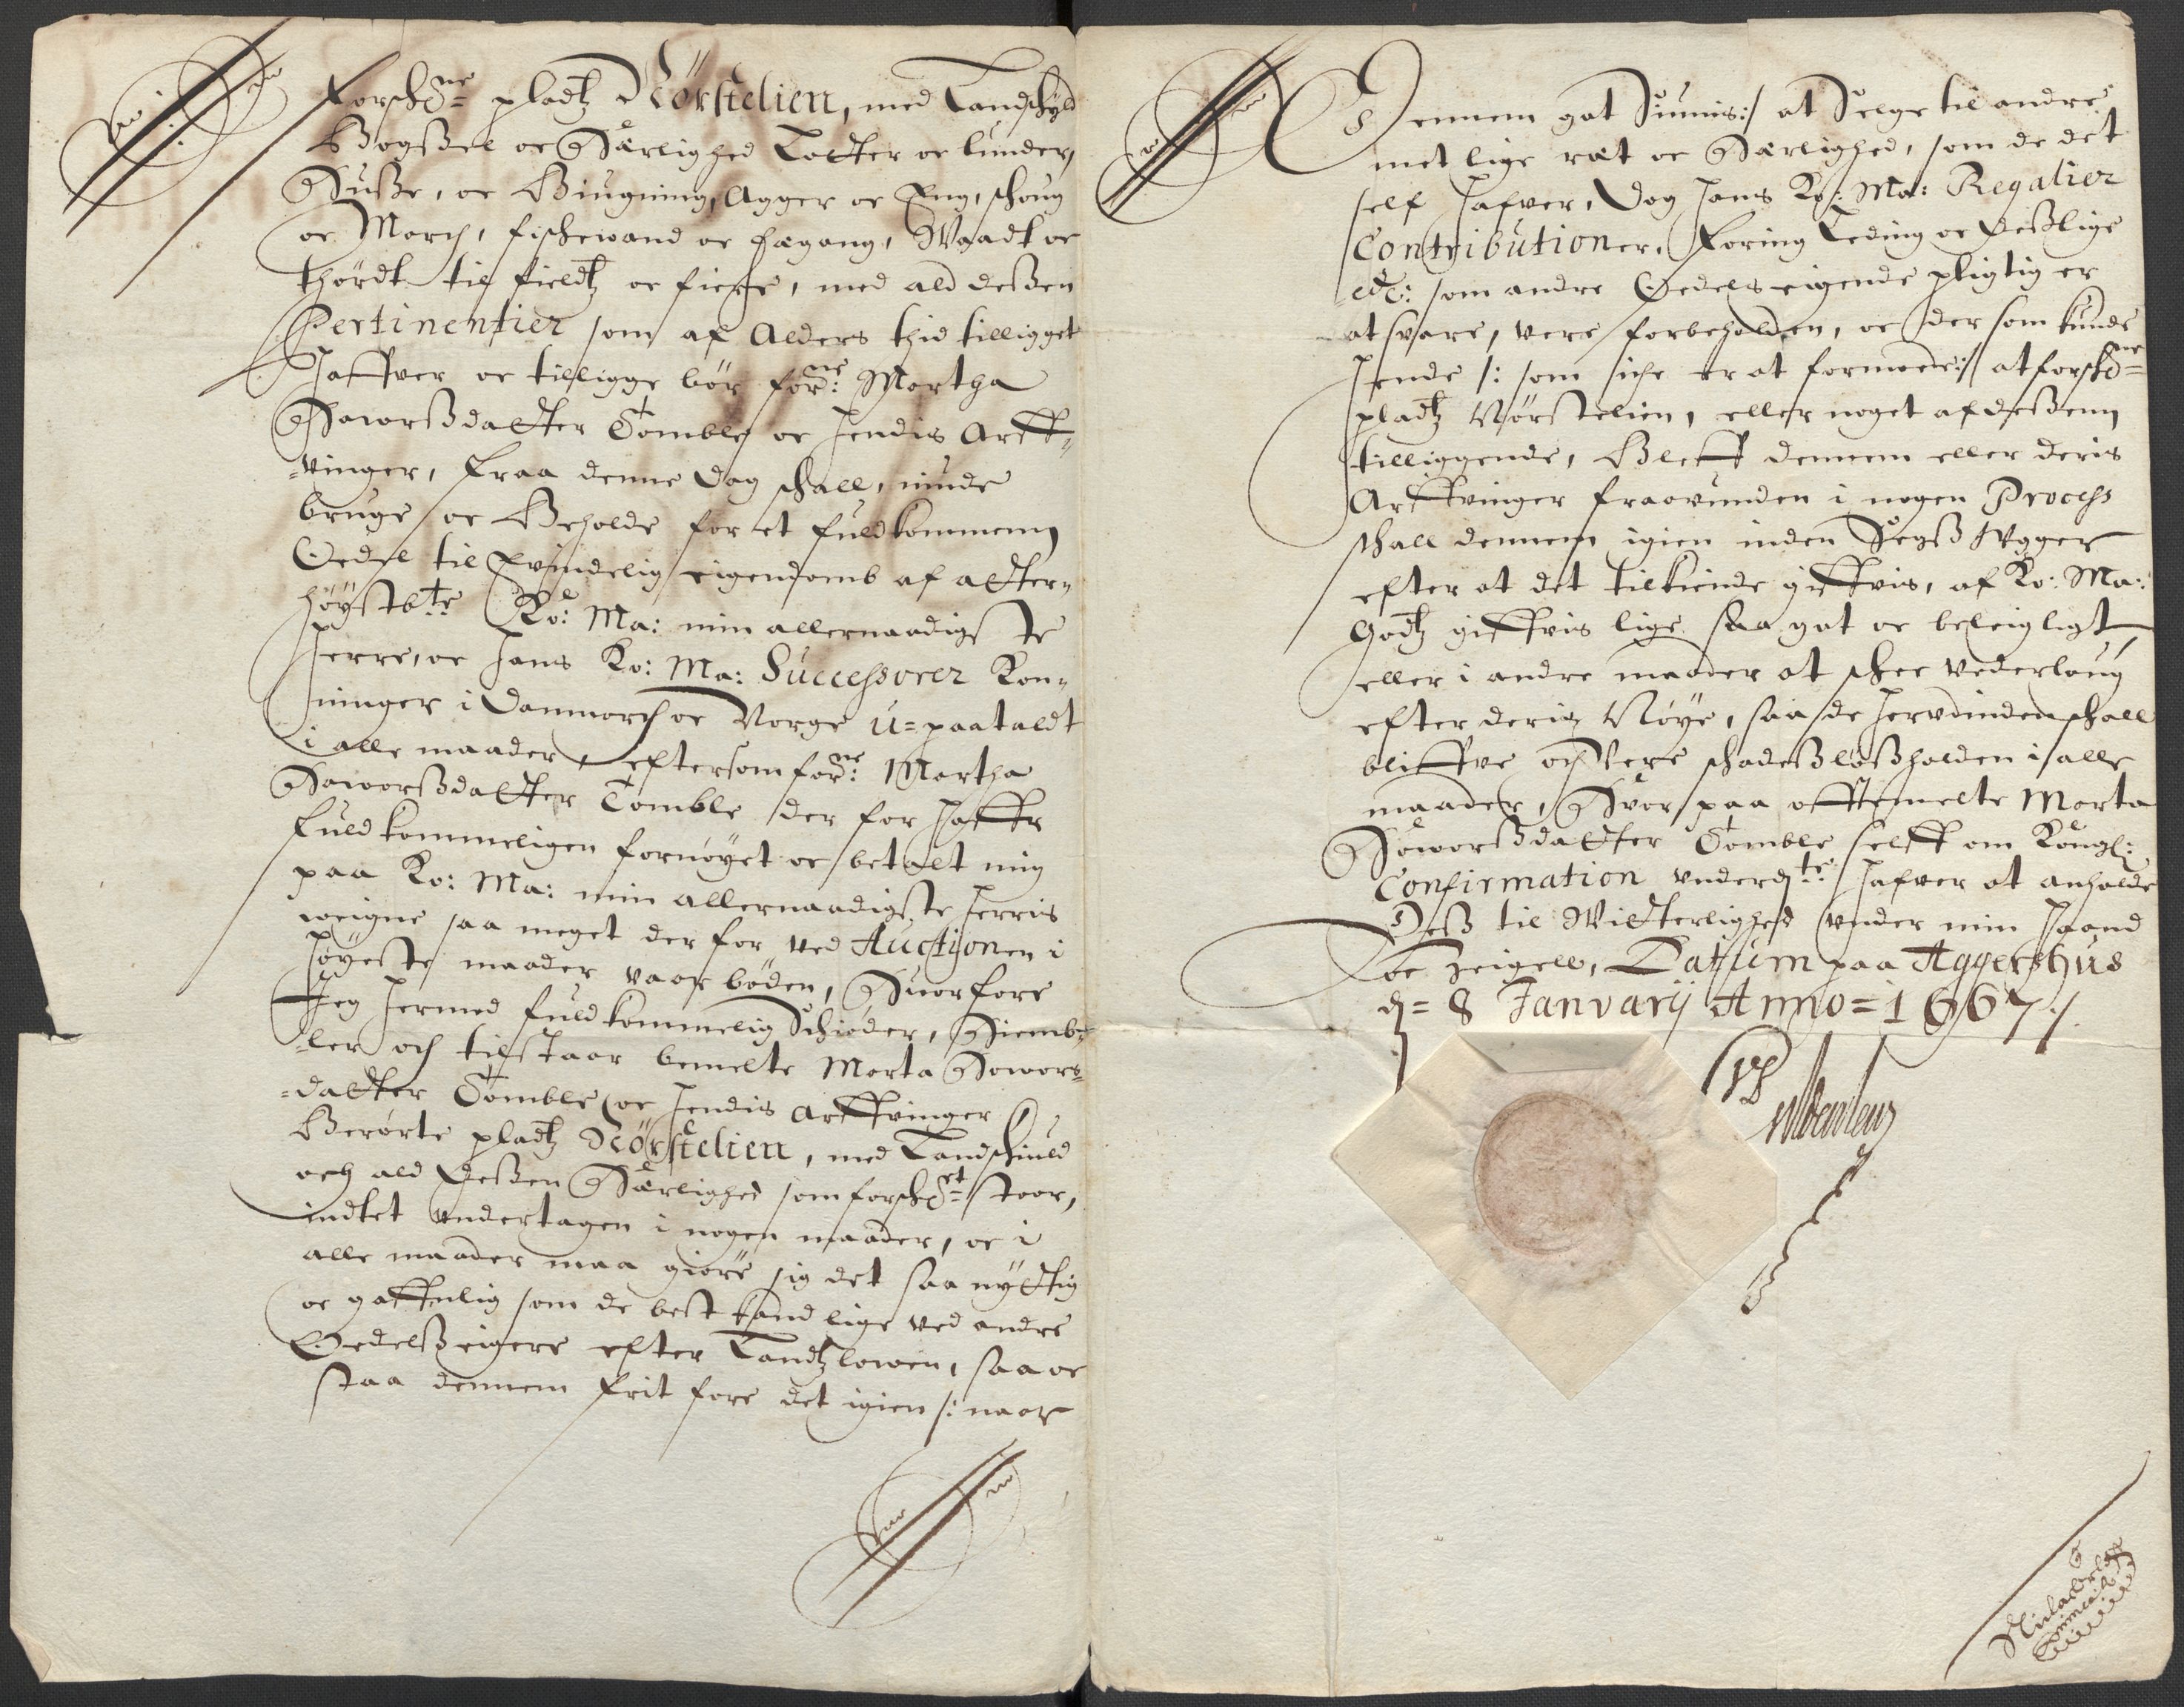 forschne pladtz Nörstelien, med Landschyld
Bögßel oc Herlighed Lotter oc lunder,
Huße, oc Biugning, Agger oc Eng, schoug
oc March, fischewand oc fægang, Waadt oc
thördt til fieldtz oc fiere, med ald deßen
Pertinentier som af Alders thid tilligget
haffver oc tilligge bör forne: Martha
Haworßdatter Tomble oc hendis Arff-
-vinger, fraa denne dag schall, niude
bruge oc Beholde for et fuldkommenn
Oedel til Evindelig eigendomb af atter-
höystbte Ko: Ma: min allernaadigste
herre, oc hans Ko: Ma: Successorer Kon-
ninger i Danmarch oc Norge u=paataldt
i alle maader, eftersom forne: Martha
Haworßdatter Tomble der for haffr
fuldkommeligen fornöyet oc betalt mig
paa Ko: Ma: min allernaadigste herris
weigne saa meget der for ved Auctionen i
höyeste maader vaar böden, Huorfore
Jeg hermed fuldkommelig Schiöder, Hiemb-
-ler och tilstaar bemelte Marta Hawors-
-datter Tomble oc hendis Arffvinger
Berörte pladtz Nörstelien, med Landschiuld
och ald Deßen Herlighed som forschet staar,
indtet undertagen i nogen maader, oc i
alle maader maa giöre sig det saa nyttig
oc gaffnlig som de best kand lige ved andre
Oedelßeigere efter Landtzlowen, saa oc
staa dennem frit fore det igien /: naar
Dennem got Siunnis:/ at Selge til andre
met lige ræt oc Herlighed, som de det
self hafver, Dog hans Ko: Ma: Regalier
Contributioner, Foring Leding oc Deßlige
etc: som andre Oedels eigende pligtig er
at svare, vere forbeholden, oc der som kunde
hende /: som iche er at formode:/ at forschne
pladtz Nörstelien, eller noget af deßenn
tilliggende, Bleff dennem eller deris
Arffvinger fraavunden i nogen Process
schall dennem igien inden Segß Wgger
efter at det tilkiende giffvis, af Ko: Ma:
Godtz giffvis lige saa got oc beleigligt
eller i andre maader at schee vederlaug
efter deris Nöye, saa de herudinden schall
bliffve och vere schadeßlößholden i alle
maader, Hvor paa offtemelte Marta
Howorßdatter Tomble selff om Kongl:
Confirmation underdte: hafver at anholde
Deß til Witterlighed under min haand
oc Zeigell, Datum paa Aggershus
d= 8 Janvarij Anno = 1667 /.